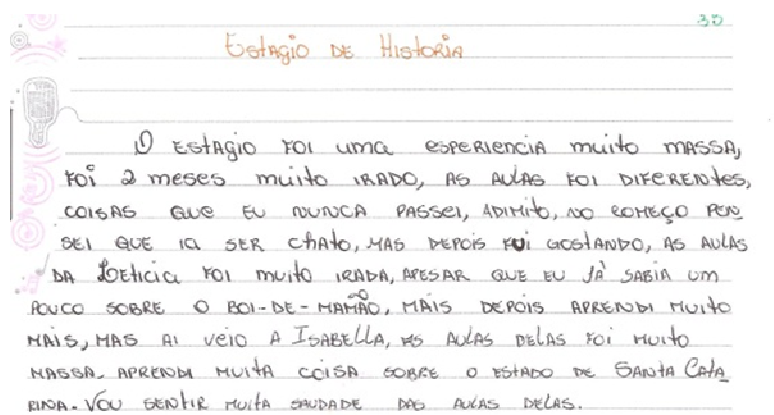 30
Estagio de Historia
O Estagio foi uma esperiencia muito massa,
foi 2 meses muito irado, as aulas foi diferentes,
coisas que eu nunca passei, adimito, no começo pen
sei que ia ser chato, mas depois fui gostando, as aulas
da Leticia foi muito irada, apesar que eu já sabia um
pouco sobre o boi-de-mamão, mais depois aprendi muito
mais, mas ai veio a Isabella, as aulas delas foi muito
massa. aprendi muita coisa sobre o estado de Santa Cata
rina. Vou sentir muita saudade das aulas delas.